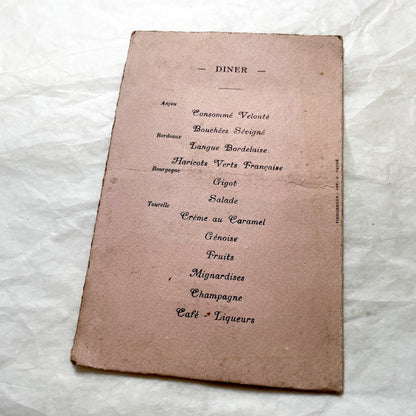 — DINER —
Anjou
Consommé Velouté
Bouchées Sévigné
Bordeaux
Langue Bordelaise
Haricots Verts Française
Bourgogne
Gigot
Salade
Tourelle
Crème au Caramel
Génoise
Fruits
Mignardises
Champagne
Café - Liqueurs